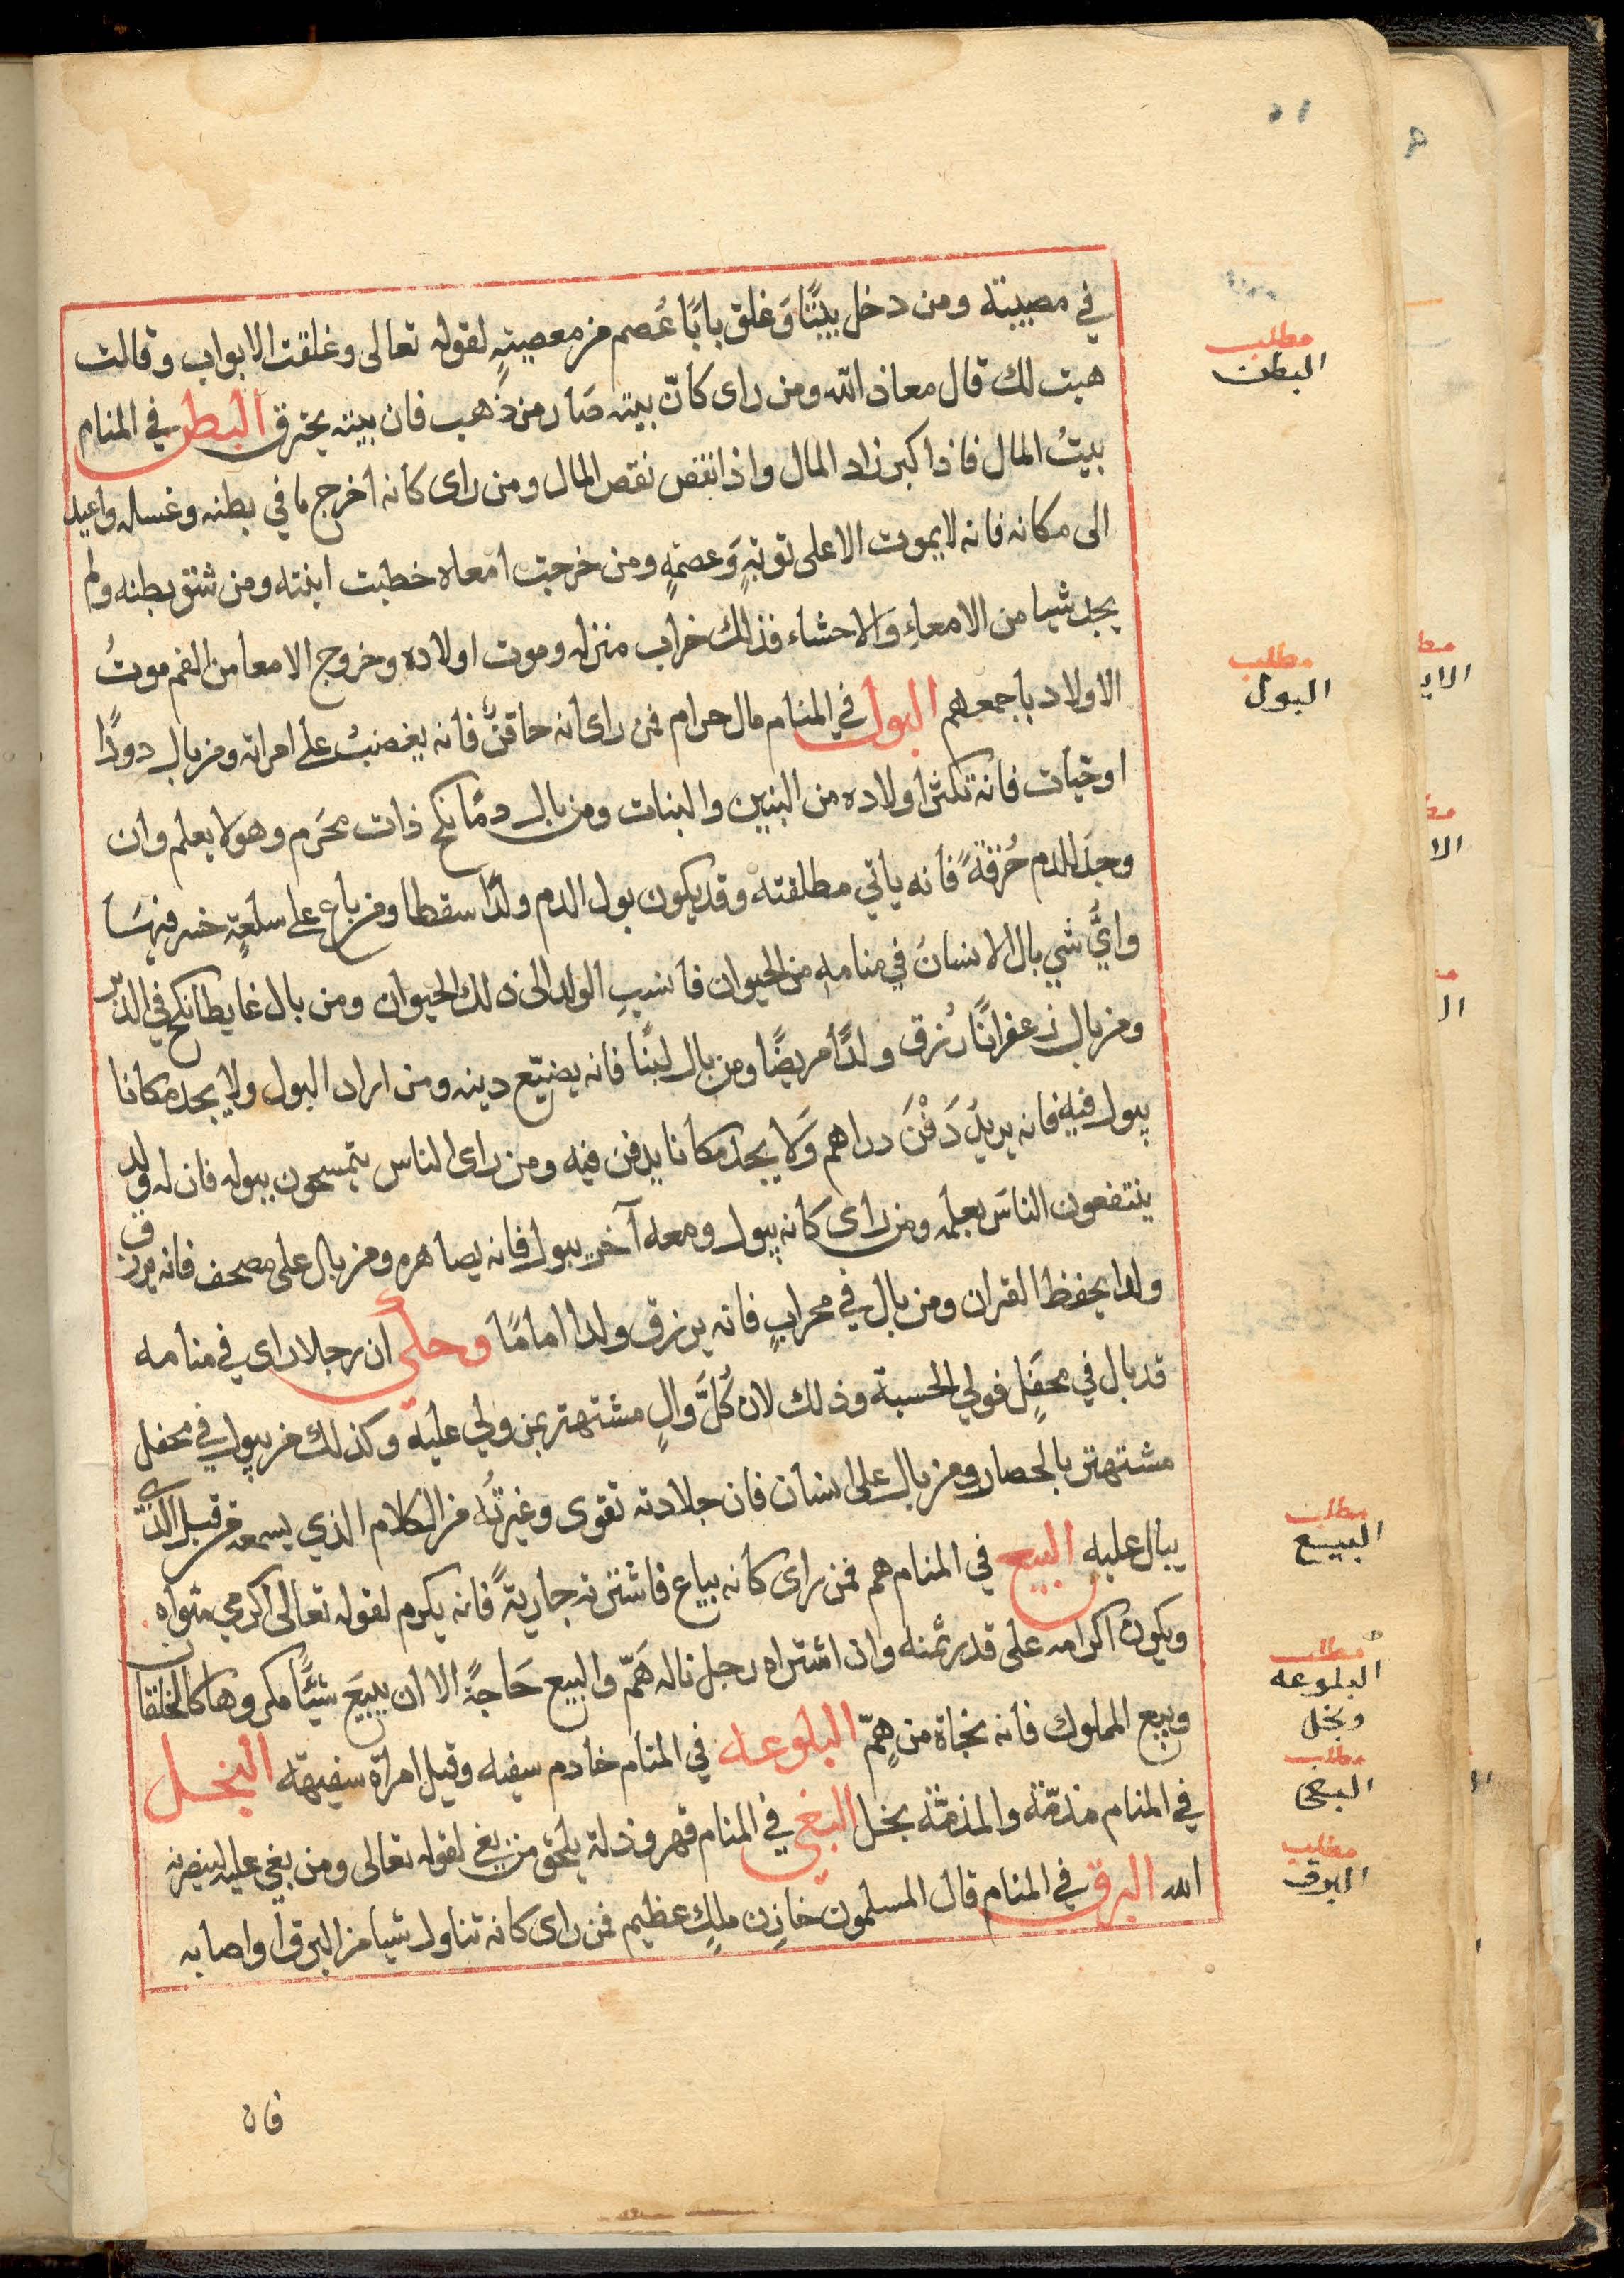 في مصيبته ومن دخل بيتًا وَغلق بابًا عُصم من معصيتهِ لقوله تعالى وغلقت الابواب وقالت
هيت لك قال معاذ الله ومن راى كانّ بيته صَار من ذهب فان بيته يحترق البطن في المنام
بيتُ المال فاذا كبر زاد المال واذا نقص نقص المال ومن راى كانه اخرج ما في بطنه وغسله واعيد
الى مكانه فانه لا يموت الا على توبةٍ وَعصمةٍ ومن خرجت امعاه خطبت ابنته ومن شق بطنه ولم
يجد شيا من الامعاءِ وَالاحشاء فذالك خراب منزله وموت اولاده وخروج الامعا من الفم موتُ
الاولاد باجمعهم البول في المنام مال حرام فمن راى انه حاقنٌ فانه يغضبُ على امراته ومن بال دودًا
اوحيات فانه تكثر اولاده من البنين والبنات ومن بال دمًا نكح ذات محرَم وهو لا يعلم وان
وجد للدم حُرقةً فانه ياتي مطلقته وقد يكون بول الدم ولدًا سقطا ومن باع على سلعةٍ خسر فيهسَا
وايُّ شي بال الانسانُ في منامهِ من الحيوان فانسبِ الولد الى ذلك الحيوان ومن بال غايطا نكح في الدّبر
ومن بال زعفرانًا رُزق ولدًا مريضًا ومن بال لبنًا فانه يضيّع دينه ومن اراد البول ولا يجد مكانا
يبول فيه فانه يريدُ دَفْنَ دراهم وَلا يجد مكانا يدفن فيه ومن راى الناس يتمسحون ببوله فان له ولد
ينتفعون الناسَ بعلمه ومن راى كانه يبول ومعه آخر يبول فانه يصاهره ومن بال على مصحف فانه يرزق
ولدا يحفظ القران ومن بال في محرابٍ فانه يرزق ولدا امامًا وحكي ان رجلا راى في منامه
قد بال في محفَلٍ فولي الحسبة وذلك لان كُلَّ والٍ مشتهر بمن ولي عليه وكذلك من يبول في محفل
مشتهر بالحصار ومن بال على انسان فان جلادته تقوى وغيرتُه من الكلام الذي يسمعه من قبل الذي
يبال عليه البيع في المنام هم فمن راى كانه يباع فاشترته جاريةً فانه يكرم لقوله تعالى اكرمي مثواه
ويكون اكرامه على قدر ثمنه وان اشتراه رجل ناله هَمّ والبيع حَاجةً الا ان يبيعَ شيًّا مكروها كالخلقان
وبيع المملوك فانه نجاة من هِمّ البلوعه في المنام خادم سفيه وقيل امراة سفيهة البخل
في المنام مذمّة والمذمّة بخل البغي في المنام قهر وذلة يلحق من بغي لقوله تعالى ومن بغي عليه لينصرنه
الله البرق في المنام قال المسلمون خازن ملكٍ عظيم فمن راى كانه تناول شيا من البرق اواصابه
فان
مطلب
البطن
مطلب
البول
مطلب
البيع
مطلب
البلوعه
وبخل
مطلب
البغي
مطلب
البرق